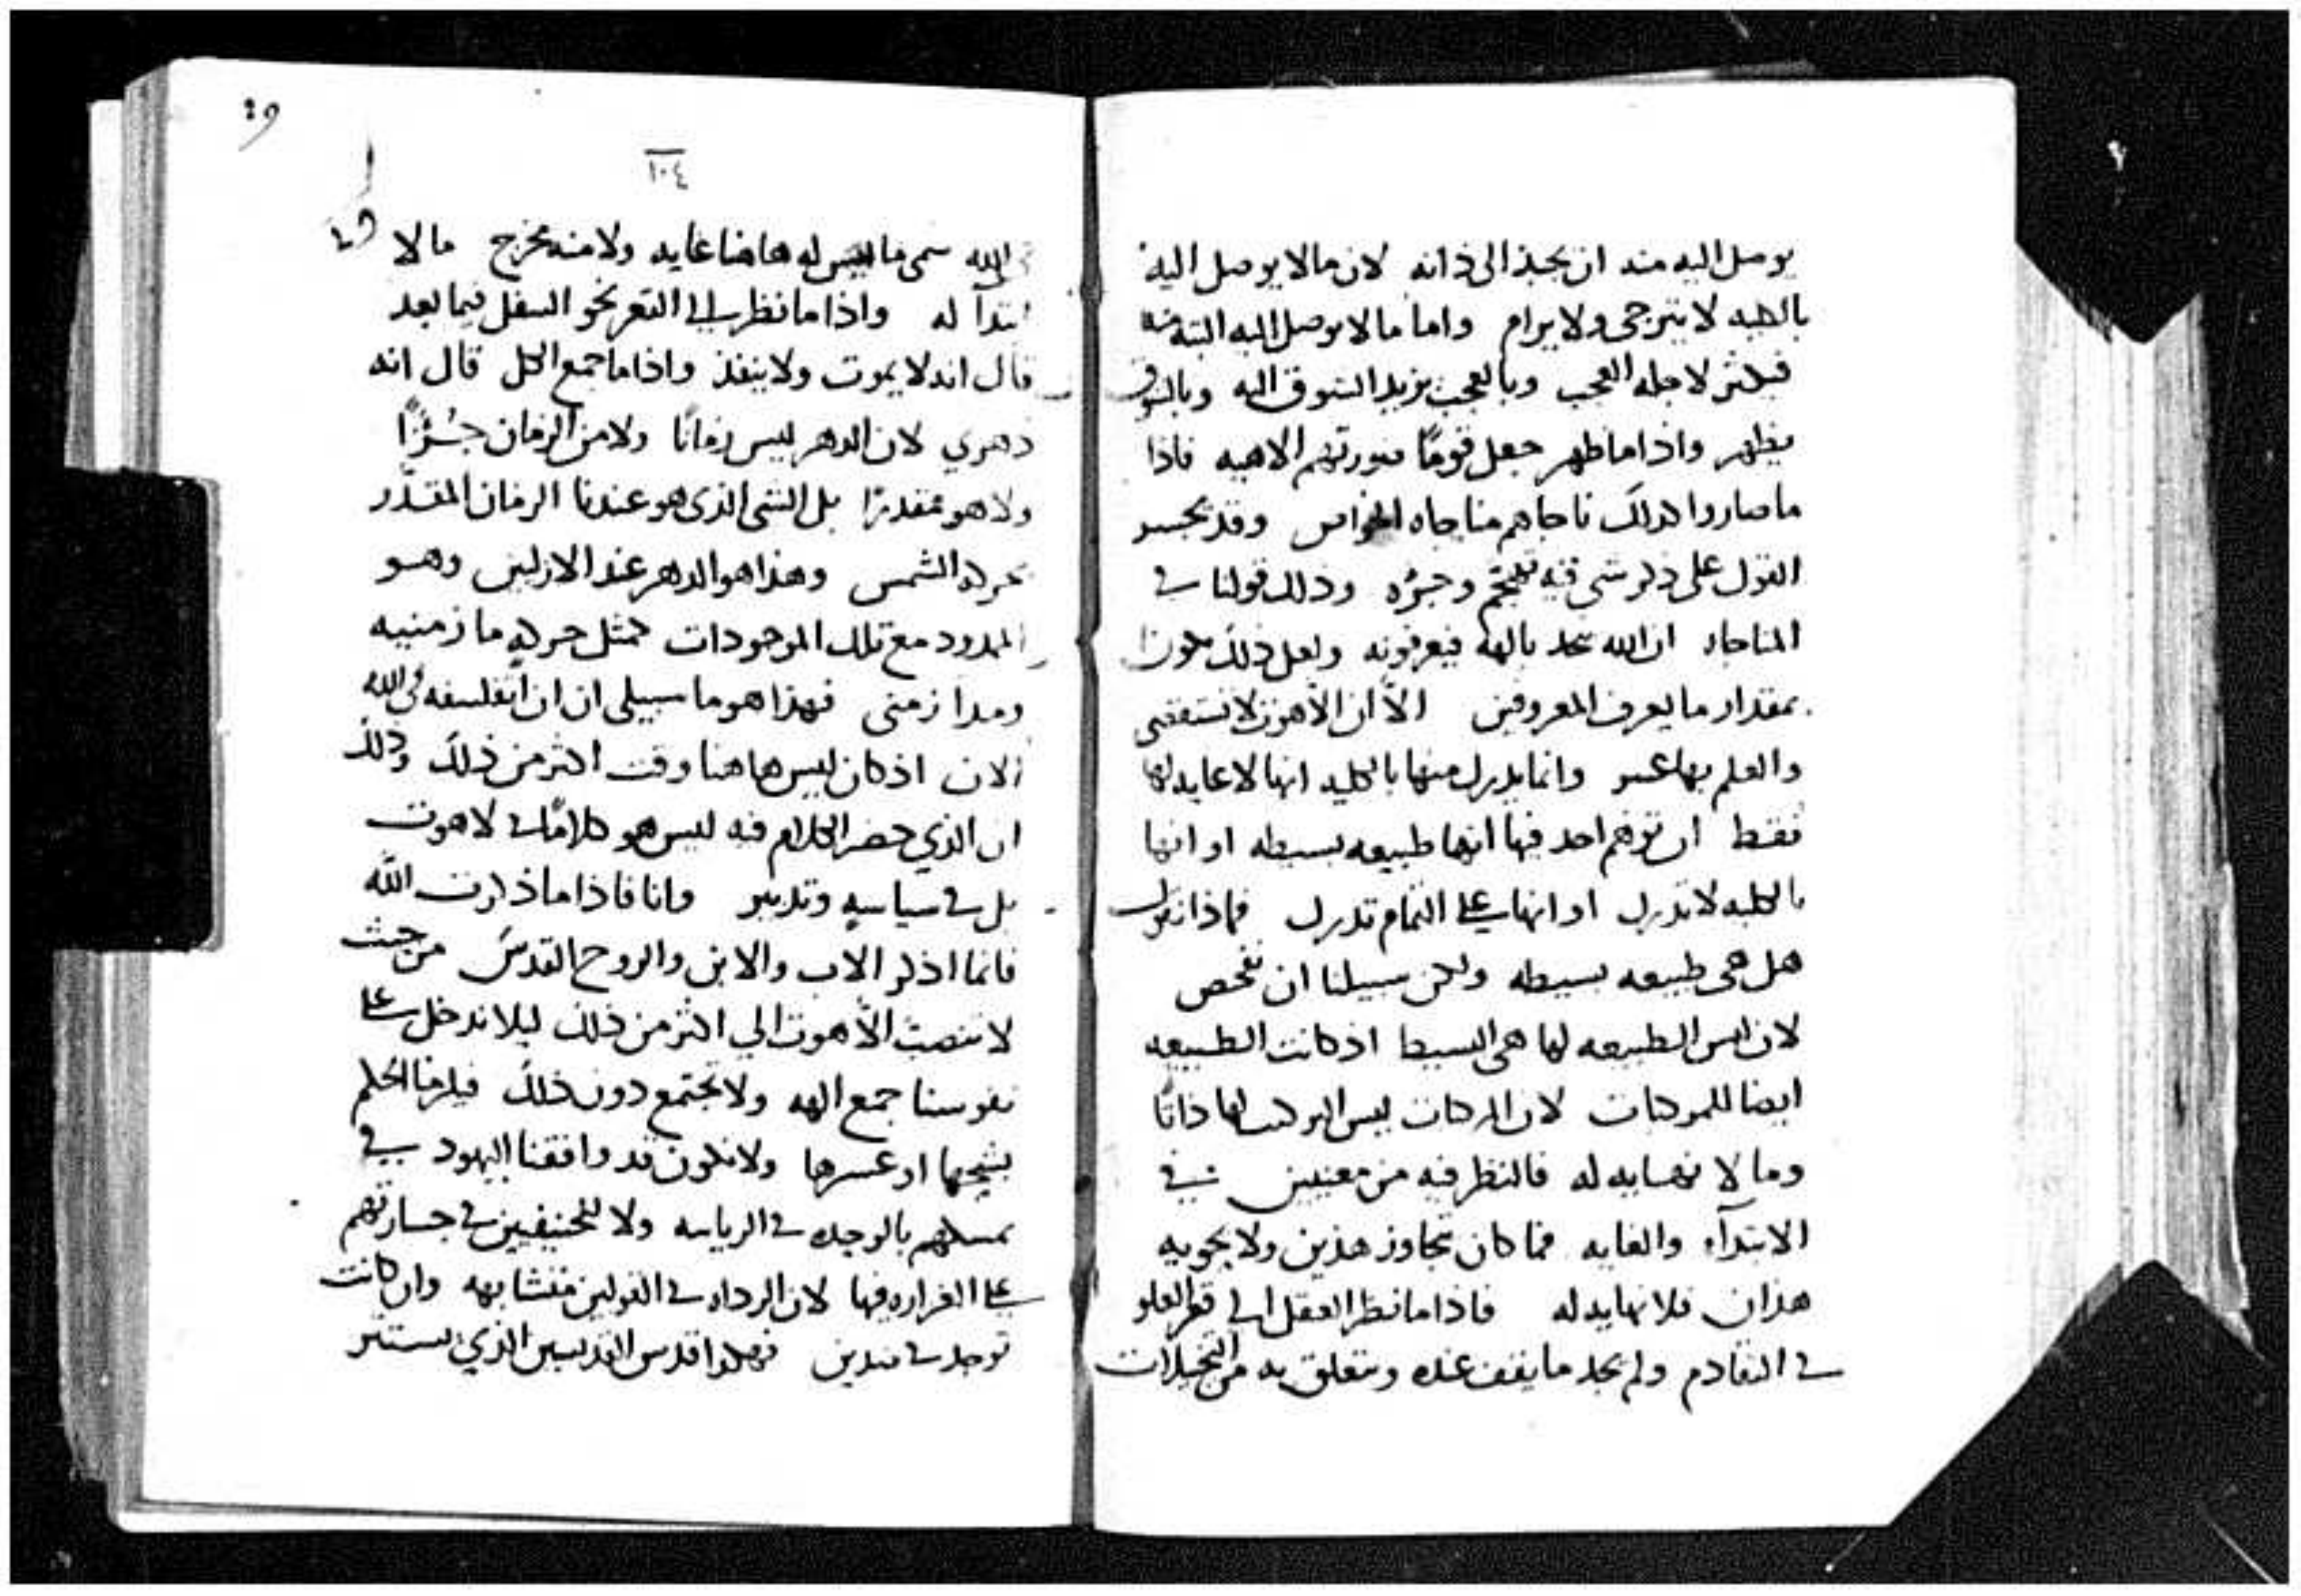 يوصل اليه منه ان يجبذ الى ذاته لان ما لا يوصل اليه
بالكليه لا يترجى ولا يرام واما ما لا يوصل اليه البته منه
فيكثر لاجله العجب وبالعجب يزيد الشوق اليه وبالشوق
يظهر واذا ما ظهر جعل قومًا صورتهم الاهيه فاذا
ما صاروا كذلك ناجاهم مناجاه الخواص وقد يجسر
القول على ذكر شى فيه وجزه وذلك قولنا فى
المناجاه ان الله يحد بالهه فيعرفونه ولعل ذلك يكون
بمقدار ما يعرف المعروفين الا ان الاهوت لا تستقصى
والعلم بها عسر وانما يدرك منها بالكليه انها لا غايه لها
فقط ان توهم احد فيها انها طبيعه بسيطه او انها
بالكليه لا تدرك او انها على التمام تدرك فماذا نقول
هل هى طبيعه بسيطه ولكن سبيلنا ان نفحص
لان ليس الطبيعه لها هى البسيطا اذ كانت الطبيعه
ايضا للمركبات لان المركبات ليس التركيب لها ذاتًا
وما لا نهايه له فالنظر فيه من معنيين فى
الابتدآء والغايه فما كان تجاوز هذين ولا يحويه
هذان فلا نهايه له فاذا ما نظر العقل الى قعر العلو
فى التقادم ولم يجد ما يقف عنده ويتعلق به من التخيلات
٤٩
١٠٤
٤٩
فى الله سمى ما ليس له هاهنا غايه ولا منه مخرج ما لا
ابتدآ له واذا ما نظر الى القعر نحو السفل فيما بعد
قال انه لا يموت ولا ينفذ واذا ما جمع الكل قال انه
دهري لان الدهر ليس زمانًا ولا من الزمان جُزئًا
ولا هو مقدرًا بل الشى الذى هو عندنا الزمان المقدّر
بحركه الشمس وهذا هو الدهر عند الازليين وهو
الممدود مع تلك الموجودات كمثل حركه ما زمنيه
ومدا زمنى فهذا هو ما سبيلى ان اتفلسفه فى الله
الان اذ كان ليس هاهنا وقت اكثر من ذلك وذلك
ان الذي حضر الكلام فيه ليس هو كلامًا فى لاهوت
بل فى سياسه وتدبير وانا فاذا ما ذكرت الله
فانما اذكر الاب والابن والروح القدس من حيث
لا تنصب الاهوت الي اكثر من ذلك ليلا ندخل على
نفوسنا جمع الهه ولا تجتمع دون ذلك فيلزمنا الحكم
بشحها او عسرها ولا نكون قد وافقنا اليهود فى
تمسكهم بالوحده فى الرياسه ولا للحنيفيين فى جسارتهم
على الغزاره فيها لان الرداه فى القولين متشابهه وان كانت
توجد فى ضدين فهكذا قدس القديسين الذي يستتر